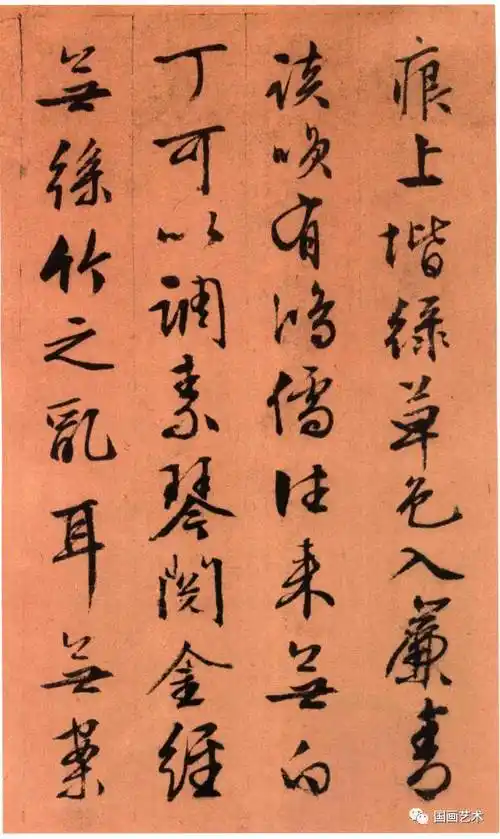 痕上堦緑草色入簾青
談唄有鴻儒往来無白
丁可以調素琴閲金經
無絲竹之亂耳無案
国画艺术